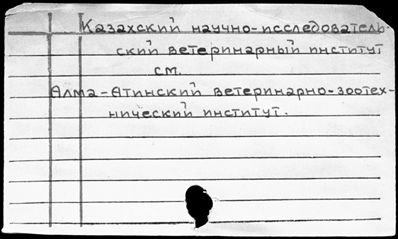 Казахский научно-исследователь
ский ветеринарный институт
см.
Алма-Атинский ветеринарно-зоотех-
нический институт.